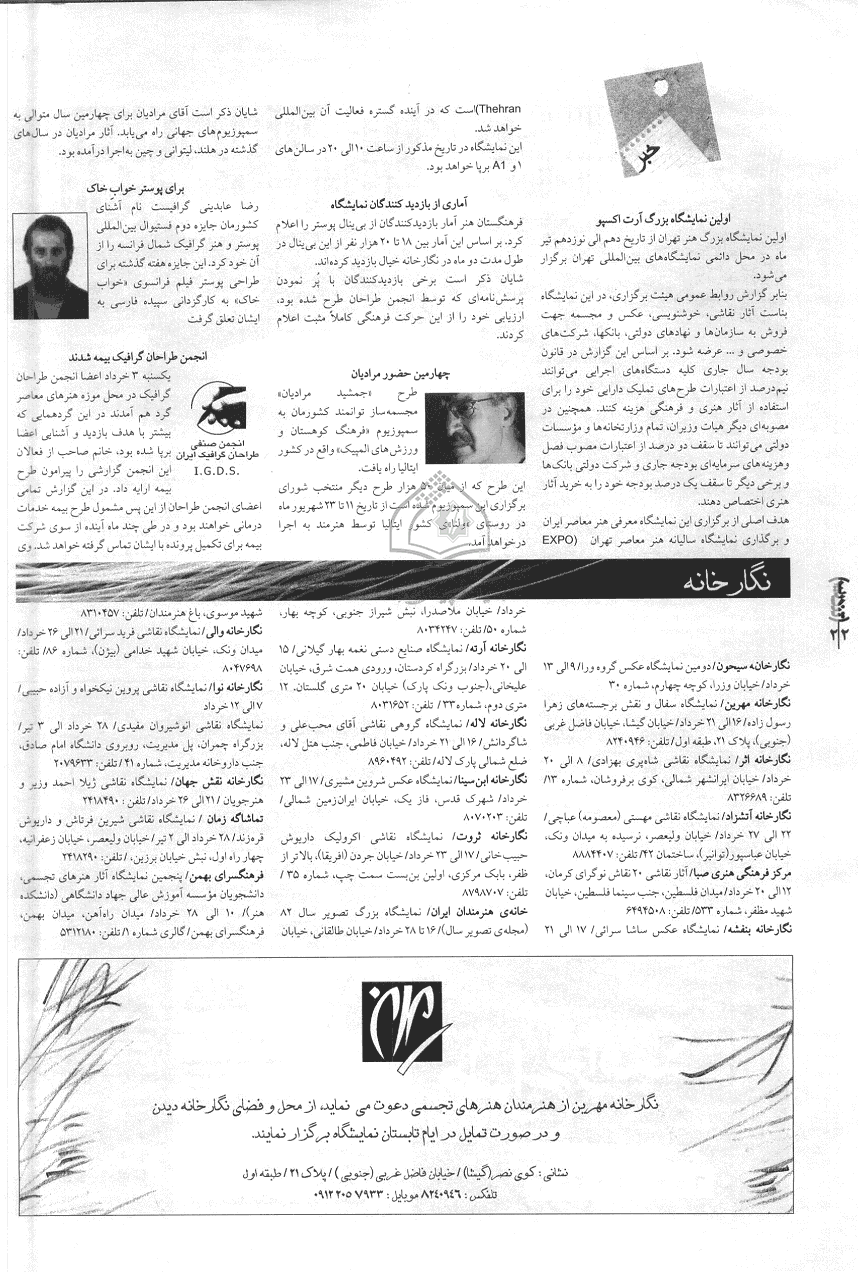 خبر
اولین نمایشگاه بزرگ آرت اکسپو
اولین نمایشگاه بزرگ هنر تهران از تاریخ دهم الی نوزدهم تیر
ماه در محل دائمی نمایشگاه‌های بین‌المللی تهران برگزار
می‌شود.
بنابر گزارش روابط عمومی هیئت برگزاری، در این نمایشگاه
بناست آثار نقاشی، خوشنویسی، عکس و مجسمه جهت
فروش به سازمان‌ها و نهادهای دولتی، بانکها، شرکت‌های
خصوصی و ... عرضه شود. بر اساس این گزارش در قانون
بودجه سال جاری کلیه دستگاه‌های اجرایی می‌توانند
نیم‌درصد از اعتبارات طرح‌های تملیک دارایی خود را برای
استفاده از آثار هنری و فرهنگی هزینه کنند. همچنین در
مصوبه‌ای دیگر هیات وزیران، تمام وزارتخانه‌ها و مؤسسات
دولتی می‌توانند تا سقف دو درصد از اعتبارات مصوب فصل
وهزینه‌های سرمایه‌ای بودجه جاری و شرکت دولتی بانک‌ها
و برخی دیگر تا سقف یک درصد بودجه خود را به خرید آثار
هنری اختصاص دهند.
هدف اصلی از برگزاری این نمایشگاه معرفی هنر معاصر ایران
و برگذاری نمایشگاه سالیانه هنر معاصر تهران (EXPO
Thehran)است که در آینده گستره فعالیت آن بین‌المللی
خواهد شد.
این نمایشگاه در تاریخ مذکور از ساعت ۱۰ الی ۲۰ در سالن‌های
۱ و A1 برپا خواهد بود.
آماری از بازدید کنندگان نمایشگاه
فرهنگستان هنر آمار بازدیدکنندگان از بی‌ینال پوستر را اعلام
کرد. بر اساس این آمار بین ۱۸ تا ۲۰ هزار نفر از این بی‌ینال در
طول مدت دو ماه در نگارخانه خیال بازدید کرده‌اند.
شایان ذکر است برخی بازدیدکنندگان با پُر نمودن
پرسش‌نامه‌ای که توسط انجمن طراحان طرح شده بود،
ارزیابی خود را از این حرکت فرهنگی کاملاً مثبت اعلام
کردند.
چهارمین حضور مرادیان
طرح «جمشید مرادیان»
مجسمه‌ساز توانمند کشورمان به
سمپوزیوم «فرهنگ کوهستان و
ورزش‌های المپیک» واقع در کشور
ایتالیا راه یافت.
این طرح که از میان ۵۰ هزار طرح دیگر منتخب شورای
برگزاری این سمپوزیوم شده است از تاریخ ۱۱ تا ۲۳ شهریور ماه
در روستای کشور ایتالیا توسط هنرمند به اجرا
درخواهد آمد.
شایان ذکر است آقای مرادیان برای چهارمین سال متوالی به
سمپوزیوم‌های جهانی راه می‌یابد. آثار مرادیان در سال‌های
گذشته در هلند، لیتوانی و چین به‌اجرا درآمده بود.
برای پوستر خواب خاک
رضا عابدینی گرافیست نام آشنای
کشورمان جایزه دوم فستیوال بین‌المللی
پوستر و هنر گرافیک شمال فرانسه را از
آن خود کرد. این جایزه هفته گذشته برای
طراحی پوستر فیلم فرانسوی «خواب
خاک» به کارگردانی سپیده فارسی به
ایشان تعلق گرفت
انجمن طراحان گرافیک بیمه شدند
یکسنبه ۳ خرداد اعضا انجمن طراحان
گرافیک در محل موزه هنرهای معاصر
گرد هم آمدند در این گردهمایی که
بیشتر با هدف بازدید و آشنایی اعضا
برپا شده بود، خانم صاحب از فعالان
این انجمن گزارشی را پیرامون طرح
بیمه ارایه داد. در این گزارش تمامی
اعضای انجمن طراحان از این پس مشمول طرح بیمه خدمات
درمانی خواهند بود و در طی چند ماه آینده از سوی شرکت
بیمه برای تکمیل پرونده با ایشان تماس گرفته خواهد شد. وی
انجمن صنفی
طراحان گرافیک ایران
I.G.D.S.
نگارخانه
۲
نگارخانه سیحون/ دومین نمایشگاه عکس گروه ورا/ ۹ الی ۱۳
خرداد/ خیابان وزرا، کوچه چهارم، شماره ۳۰
نگارخانه مهرین/ نمایشگاه سفال و نقش برجسته‌های زهرا
رسول زاده/ ۱۶ الی ۲۱ خرداد/ خیابان گیشا، خیابان فاضل غربی
(جنوبی)، پلاک ۲۱، طبقه اول/ تلفن: ۸۲۴۰۹۴۶
نگارخانه اثر/ نمایشگاه نقاشی شاه‌پری بهزادی/ ۸ الی ۲۰
خرداد/ خیابان ایرانشهر شمالی، کوی برفروشان، شماره ۱۳/
تلفن: ۸۳۲۶۶۸۹
نگارخانه آتشزاد/ نمایشگاه نقاشی مهستی (معصومه) عباچی/
۲۲ الی ۲۷ خرداد/ خیابان ولیعصر، نرسیده به میدان ونک،
خیابان عباسپور(توانیر)، ساختمان ۴۲/ تلفن: ۸۸۸۴۴۰۷
مرکز فرهنگی هنری صبا/ آثار نقاشی ۲۰ نقاش نوگرای کرمان،
۱۲ الی ۲۰ خرداد/ میدان فلسطین، جنب سینما فلسطین، خیابان
شهید مظفر، شماره ۵۳۳/ تلفن: ۶۴۹۴۵۰۸
نگارخانه بنفشه/ نمایشگاه عکس ساشا سرائی/ ۱۷ الی ۲۱
خرداد/ خیابان ملاصدرا، نبش شیراز جنوبی، کوچه بهار،
شماره ۵۰/ تلفن: ۸۰۳۴۲۴۷
نگارخانه آرته/ نمایشگاه صنایع دستی نغمه بهار گیلانی/ ۱۵
الی ۲۰ خرداد/ بزرگراه کردستان، ورودی همت شرق، خیابان
علیخانی،(جنوب ونک پارک) خیابان ۲۰ متری گلستان، ۱۲
متری دوم، شماره ۳۳/ تلفن: ۸۰۳۱۶۵۲
نگارخانه لاله/ نمایشگاه گروهی نقاشی آقای محب‌علی و
شاگردانش/ ۱۶ الی ۲۱ خرداد/ خیابان فاطمی، جنب هتل لاله،
ضلع شمالی پارک لاله/ تلفن: ۸۹۶۰۴۹۲
نگارخانه ابن‌سینا/ نمایشگاه عکس شروین مشیری/ ۱۷ الی ۲۳
خرداد/ شهرک قدس، فاز یک، خیابان ایران‌زمین شمالی/
تلفن: ۸۰۷۰۲۰۳
نگارخانه ثروت/ نمایشگاه نقاشی اکرولیک داریوش
حبیب‌خانی/ ۱۷ الی ۲۳ خرداد/ خیابان جردن (افریقا)، بالاتر از
ظفر، بابک مرکزی، اولین بن‌بست سمت چپ، شماره ۳۵ /
تلفن: ۸۷۹۸۷۰۷
خانه‌ی هنرمندان ایران/ نمایشگاه بزرگ تصویر سال ۸۲
(مجله‌ی تصویر سال)/ ۱۶ تا ۲۸ خرداد/ خیابان طالقانی، خیابان
شهید موسوی، باغ هنرمندان/ تلفن: ۸۳۱۰۴۵۷
نگارخانه والی/ نمایشگاه نقاشی فرید سرائی/ ۲۱ الی ۲۶ خرداد/
میدان ونک، خیابان شهید خدامی (بیژن)، شماره ۸۶/ تلفن:
۸۰۴۷۶۹۸
نگارخانه نوا/ نمایشگاه نقاشی پروین نیکخواه و آزاده حبیبی/
۷ الی ۱۲ خرداد
نمایشگاه نقاشی انوشیروان مفیدی/ ۲۸ خرداد الی ۳ تیر/
بزرگراه چمران، پل مدیریت، روبروی دانشگاه امام صادق،
جنب داروخانه مدیریت، شماره ۴۱/ تلفن: ۲۰۷۹۶۳۳
نگارخانه نقش جهان/ نمایشگاه نقاشی ژیلا احمد وزیر و
هنرجویان / ۲۱ الی ۲۶ خرداد/ تلفن: ۲۴۱۸۴۹۰
تماشاگه زمان / نمایشگاه نقاشی شیرین فرتاش و داریوش
قره‌زند/ ۲۸ خرداد الی ۲ تیر/ خیابان ولیعصر، خیابان زعفرانیه،
چهار راه اول، نبش خیابان برزین، / تلفن: ۲۴۱۸۲۹۰
فرهنگسرای بهمن/ پنجمین نمایشگاه آثار هنرهای تجسمی،
دانشجویان مؤسسه آموزش عالی جهاد دانشگاهی (دانشکده
هنر)/ ۱۰ الی ۲۸ خرداد/ میدان راه‌آهن، میدان بهمن،
فرهنگسرای بهمن/ گالری شماره ۱/ تلفن: ۵۳۱۲۱۸۰
نگارخانه مهرین از هنرمندان هنرهای تجسمی دعوت می نماید، از محل و فضای نگارخانه دیدن
و در صورت تمایل در ایام تابستان نمایشگاه برگزار نمایند.
نشانی: کوی نصر(گیشا) / خیابان فاضل غربی (جنوبی) / پلاک ۲۱ / طبقه اول
تلفکس: ۸۲۴۰۹۴۶ موبایل: ۰۹۱۲ ۲۰۵ ۷۹۳۳